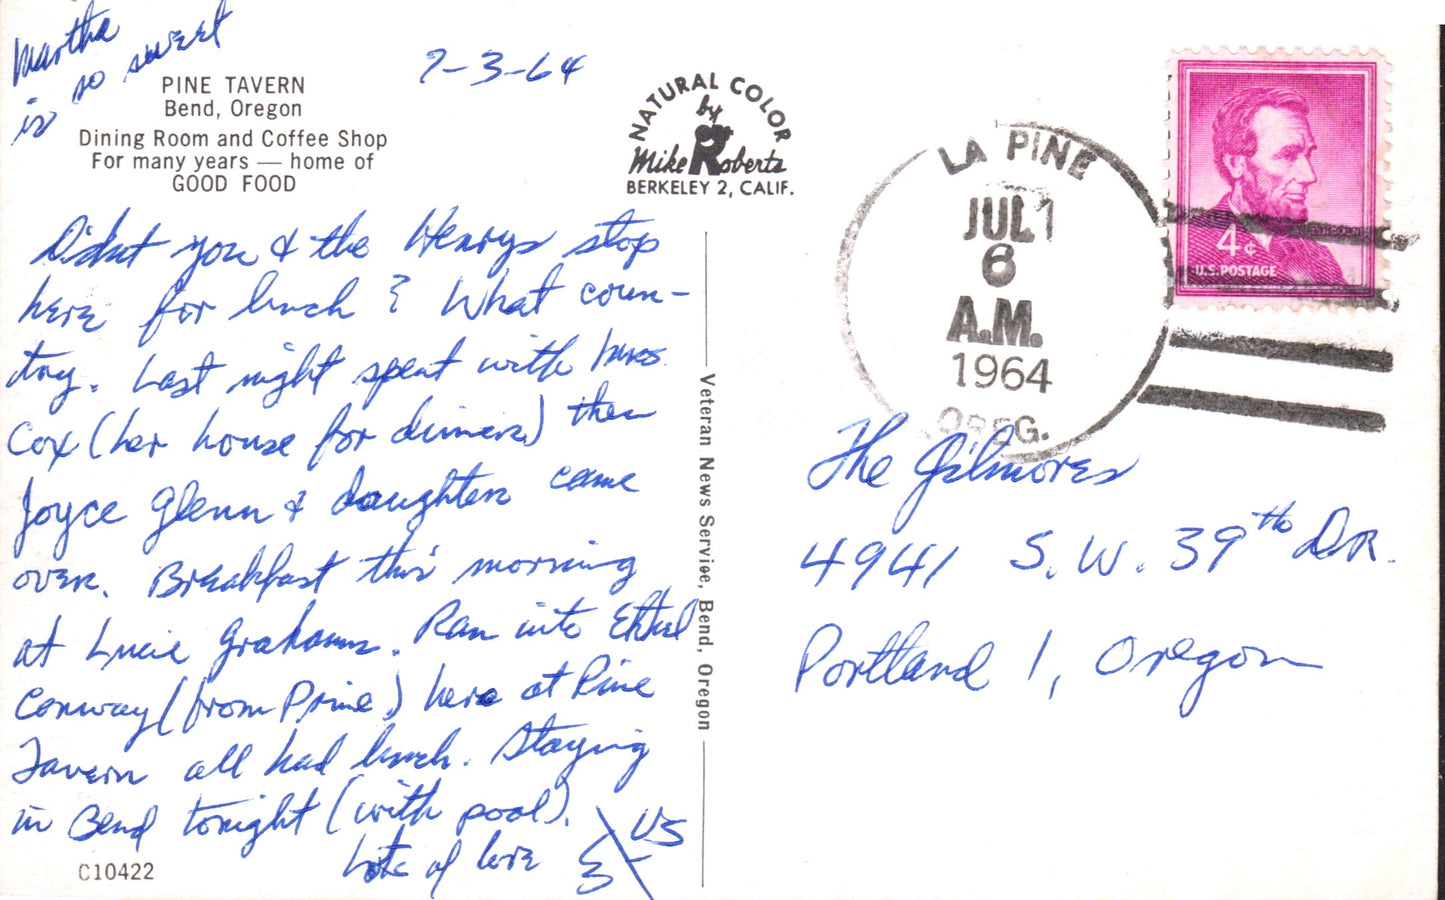 Martha
is so sweet
PINE TAVERN
Bend, Oregon
Dining Room and Coffee Shop
For many years — home of
GOOD FOOD
7-3-64
NATURAL COLOR
by
Mike Roberts
BERKELEY 2, CALIF.
Didnt you & the Henrys stop
here for lunch? What coun-
try. Last night spent with Mrs.
Cox (her house for dinner) then
Joyce Glenn & daughter came
over. Breakfast this morning
at Lucie Grahams. Ran into Ethel
Conway (from Prine) here at Pine
Tavern all had lunch. Staying
in Bend tonight (with pool).
Lots of love
US
C10422
Veteran News Service, Bend, Oregon
LA PINE
JUL 1
6
A.M.
1964
OREG.
4¢
U.S. POSTAGE
The Gilmores
4941 S.W. 39th Dr.
Portland 1, Oregon